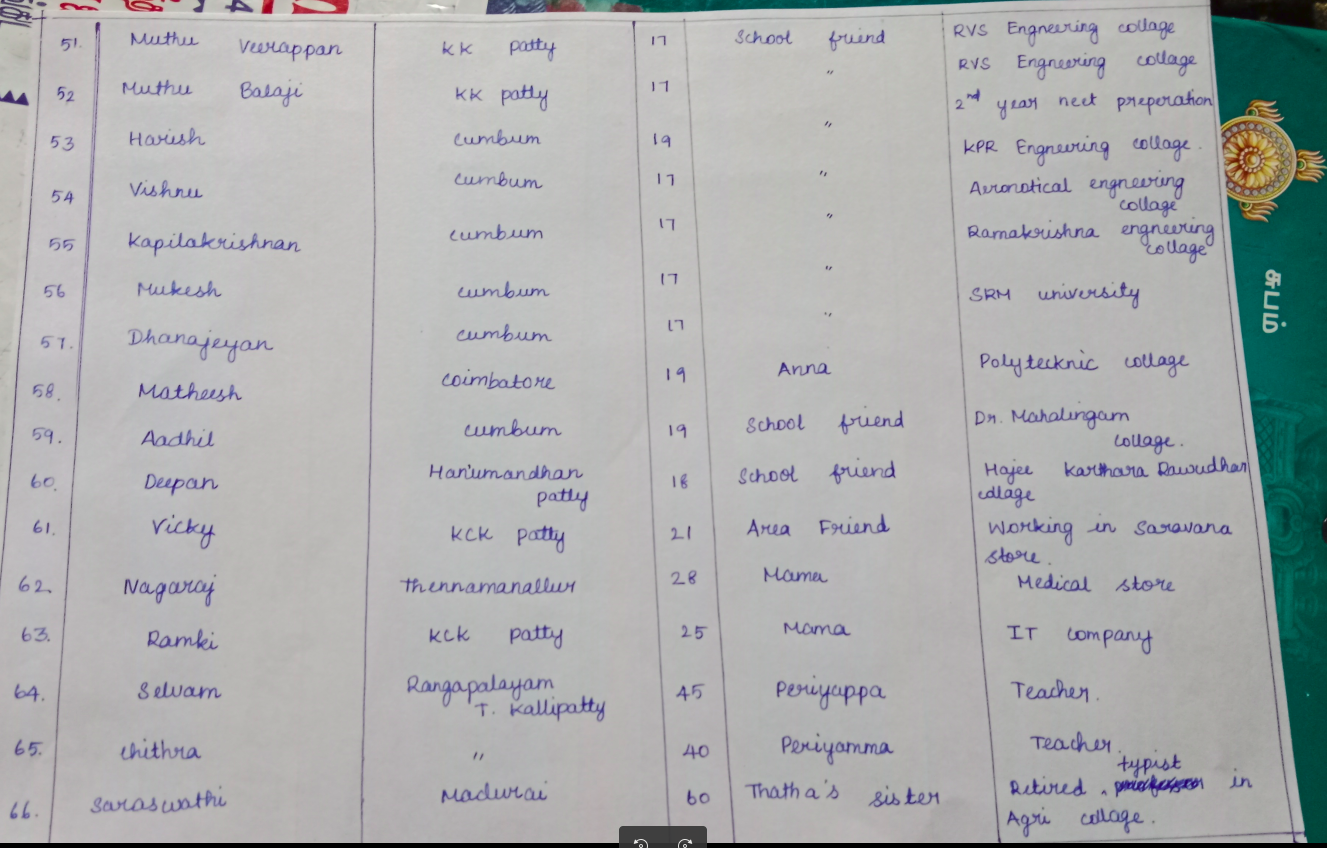 51. Muthu Veerappan KK patty 17 School friend RVS Engneering collage
52 Muthu Balaji KK patty 17 " RVS Engneering collage
53 Harish cumbum 19 " 2nd year neet preperation
54 Vishnu cumbum 17 " KPR Engneering collage.
55 Kapilakrishnan cumbum 17 " Aeronotical engneering
collage
56 Mukesh cumbum 17 " Ramakrishna engneering
collage
57. Dhanajeyan cumbum 17 " SRM university
58. Matheesh coimbatore 19 Anna Polytecknic collage
59. Aadhil cumbum 19 School friend Dr. Mahalingam
collage.
60. Deepan Hanumandhan 18 School friend Hajee Karthara Rawudhar
patty collage
61. Vicky KCK patty 21 Area Friend Working in Saravana
store.
62. Nagaraj Thennamanallur 28 Mama Medical store
63. Ramki KCK patty 25 Mama IT company
64. Selvam Rangapalayam 45 Periyappa Teacher.
T. Kallipatty
65. chithra " 40 Periyamma Teacher.
typist
66. Saraswathi Madurai 60 Thatha's sister Retired in
Agri collage.
சுடம்